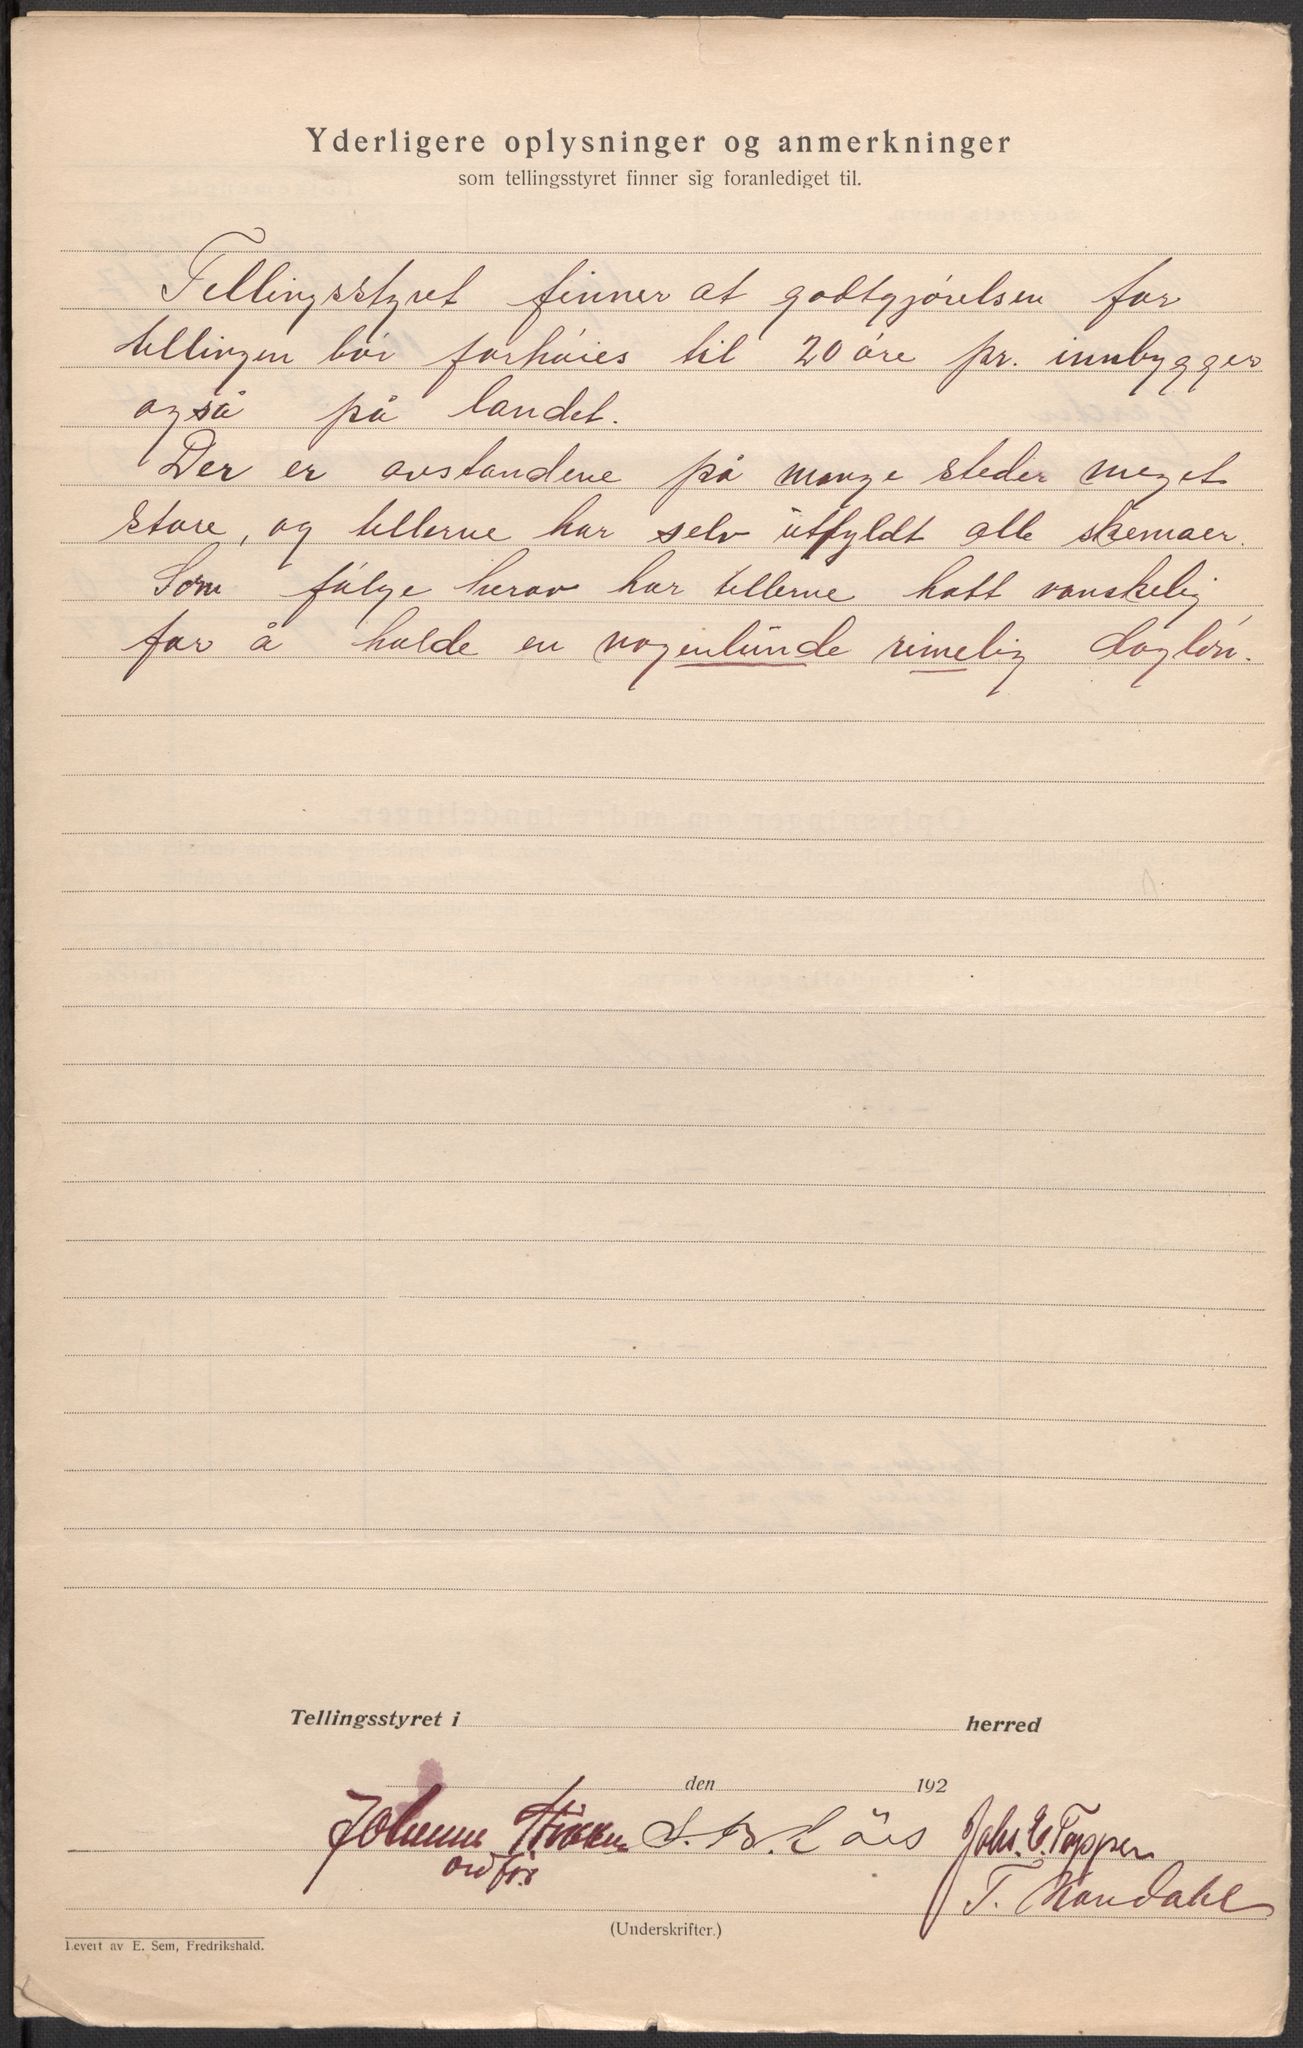 Yderligere oplysninger og anmerkninger
som tellingsstyret finner sig foranlediget til.
Tellingsstyret finner at godtgjørelsen for
tellingen bør forhøies til 20 øre pr. innbygger
også på landet.
Der er avstandene på mange steder meget
store, og tellerne har selv utfyldt alle skemaer.
Som følge herav har tellerne hatt vanskelig
for å holde en nogenlunde rimelig dagløn.
Tellingsstyret i herred
den 192
Johannes S. B. Johs. E. Topper
ordfør T.
(Underskrifter.)
Levert av E. Sem, Fredrikshald.